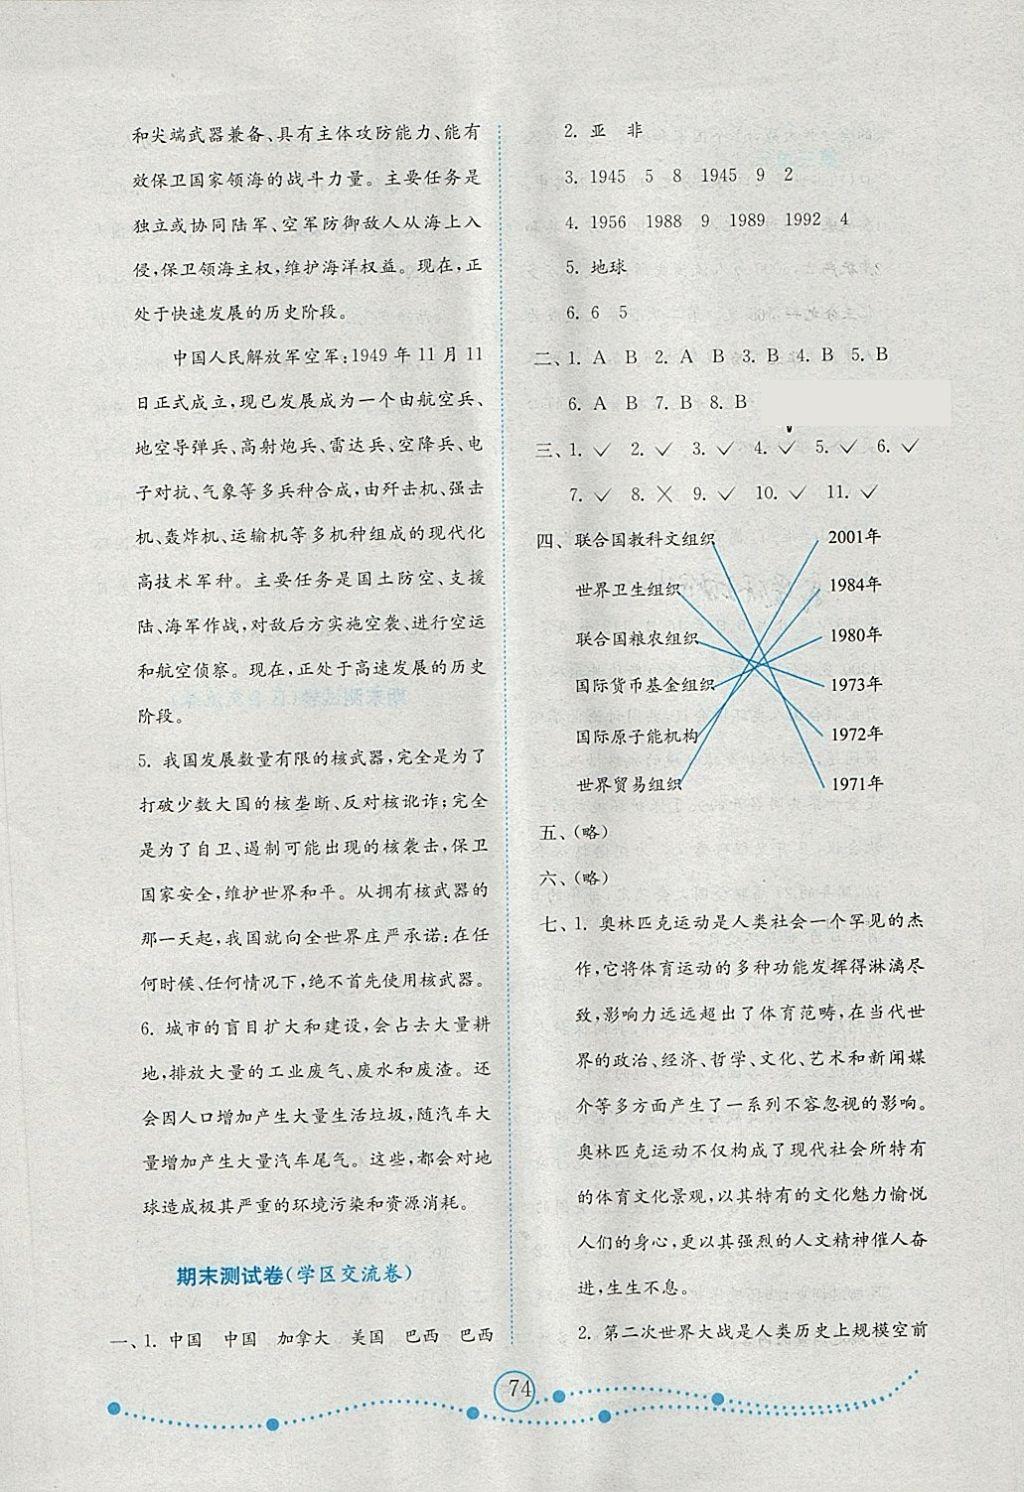 和尖端武器兼备、具有主体攻防能力、能有
效保卫国家领海的战斗力量。主要任务是
独立或协同陆军、空军防御敌人从海上入
侵,保卫领海主权,维护海洋权益。现在,正
处于快速发展的历史阶段。
中国人民解放军空军:1949年11月11
日正式成立,现已发展成为一个由航空兵、
地空导弹兵、高射炮兵、雷达兵、空降兵、电
子对抗、气象等多兵种合成,由歼击机、强击
机、轰炸机、运输机等多机种组成的现代化
高技术军种。主要任务是国土防空、支援
陆、海军作战,对敌后方实施空袭、进行空运
和航空侦察。现在,正处于高速发展的历史
阶段。
5. 我国发展数量有限的核武器,完全是为了
打破少数大国的核垄断、反对核讹诈;完全
是为了自卫、遏制可能出现的核袭击,保卫
国家安全,维护世界和平。从拥有核武器的
那一天起,我国就向全世界庄严承诺:在任
何时候、任何情况下,绝不首先使用核武器。
6. 城市的盲目扩大和建设,会占去大量耕
地,排放大量的工业废气、废水和废渣。还
会因人口增加产生大量生活垃圾,随汽车大
量增加产生大量汽车尾气。这些,都会对地
球造成极其严重的环境污染和资源消耗。
期末测试卷(学区交流卷)
一、1. 中国 中国 加拿大 美国 巴西 巴西
2. 亚 非
3. 1945 5 8 1945 9 2
4. 1956 1988 9 1989 1992 4
5. 地球
6. 6 5
二、1. A B 2. A B 3. B 4. B 5. B
6. A B 7. B 8. B
三、1. ✓ 2. ✓ 3. ✓ 4. ✓ 5. ✓ 6. ✓
7. ✓ 8. ✗ 9. ✓ 10. ✓ 11. ✓
四、联合国教科文组织 2001年
世界卫生组织 1984年
联合国粮农组织 1980年
国际货币基金组织 1973年
国际原子能机构 1972年
世界贸易组织 1971年
五、(略)
六、(略)
七、1. 奥林匹克运动是人类社会一个罕见的杰
作,它将体育运动的多种功能发挥得淋漓尽
致,影响力远远超出了体育范畴,在当代世
界的政治、经济、哲学、文化、艺术和新闻媒
介等多方面产生了一系列不容忽视的影响。
奥林匹克运动不仅构成了现代社会所特有
的体育文化景观,以其特有的文化魅力愉悦
人们的身心,更以其强烈的人文精神催人奋
进,生生不息。
2. 第二次世界大战是人类历史上规模空前
74